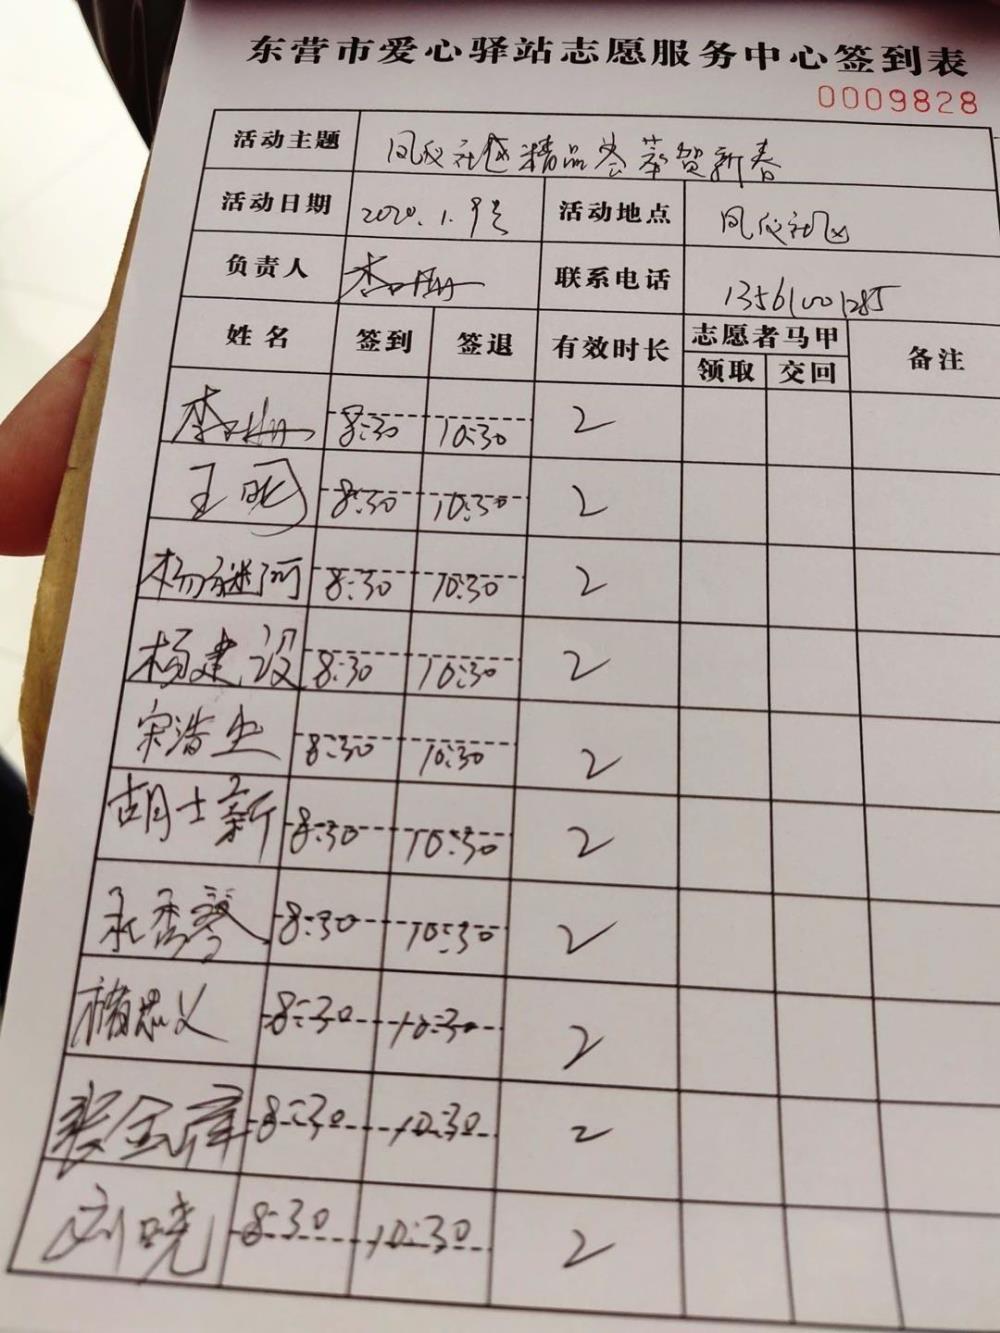 东营市爱心驿站志愿服务中心签到表
0009828
活动主题 凤仪社区精品荟萃贺新春
活动日期 2020.1.9号 活动地点 凤仪社区
负责人 联系电话 13561001285
姓名 签到 签退 有效时长 志愿者马甲 备注
领取 交回
李 8:30 10:30 2
王 8:30 10:30 2
杨 8:30 10:30 2
杨建设 8:30 10:30 2
宋浩 8:30 10:30 2
胡士新 8:30 10:30 2
秀琴 8:30 10:30 2
忠义 8:30 10:30 2
金库 8:30 10:30 2
刘晓 8:30 10:30 2